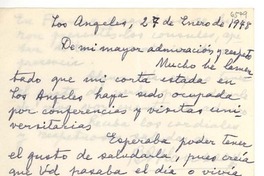 6549
Los Angeles, 27 de Enero de 1948
De mi mayor admiración y respeto
Mucho he lamen
tado que mi corta estada en
Los Angeles haya sido ocupada
por conferencias y visitas uni
versitarias
Esperaba poder tener
el gusto de saludarla, pues creía
que Vd pasaba el día o vivía